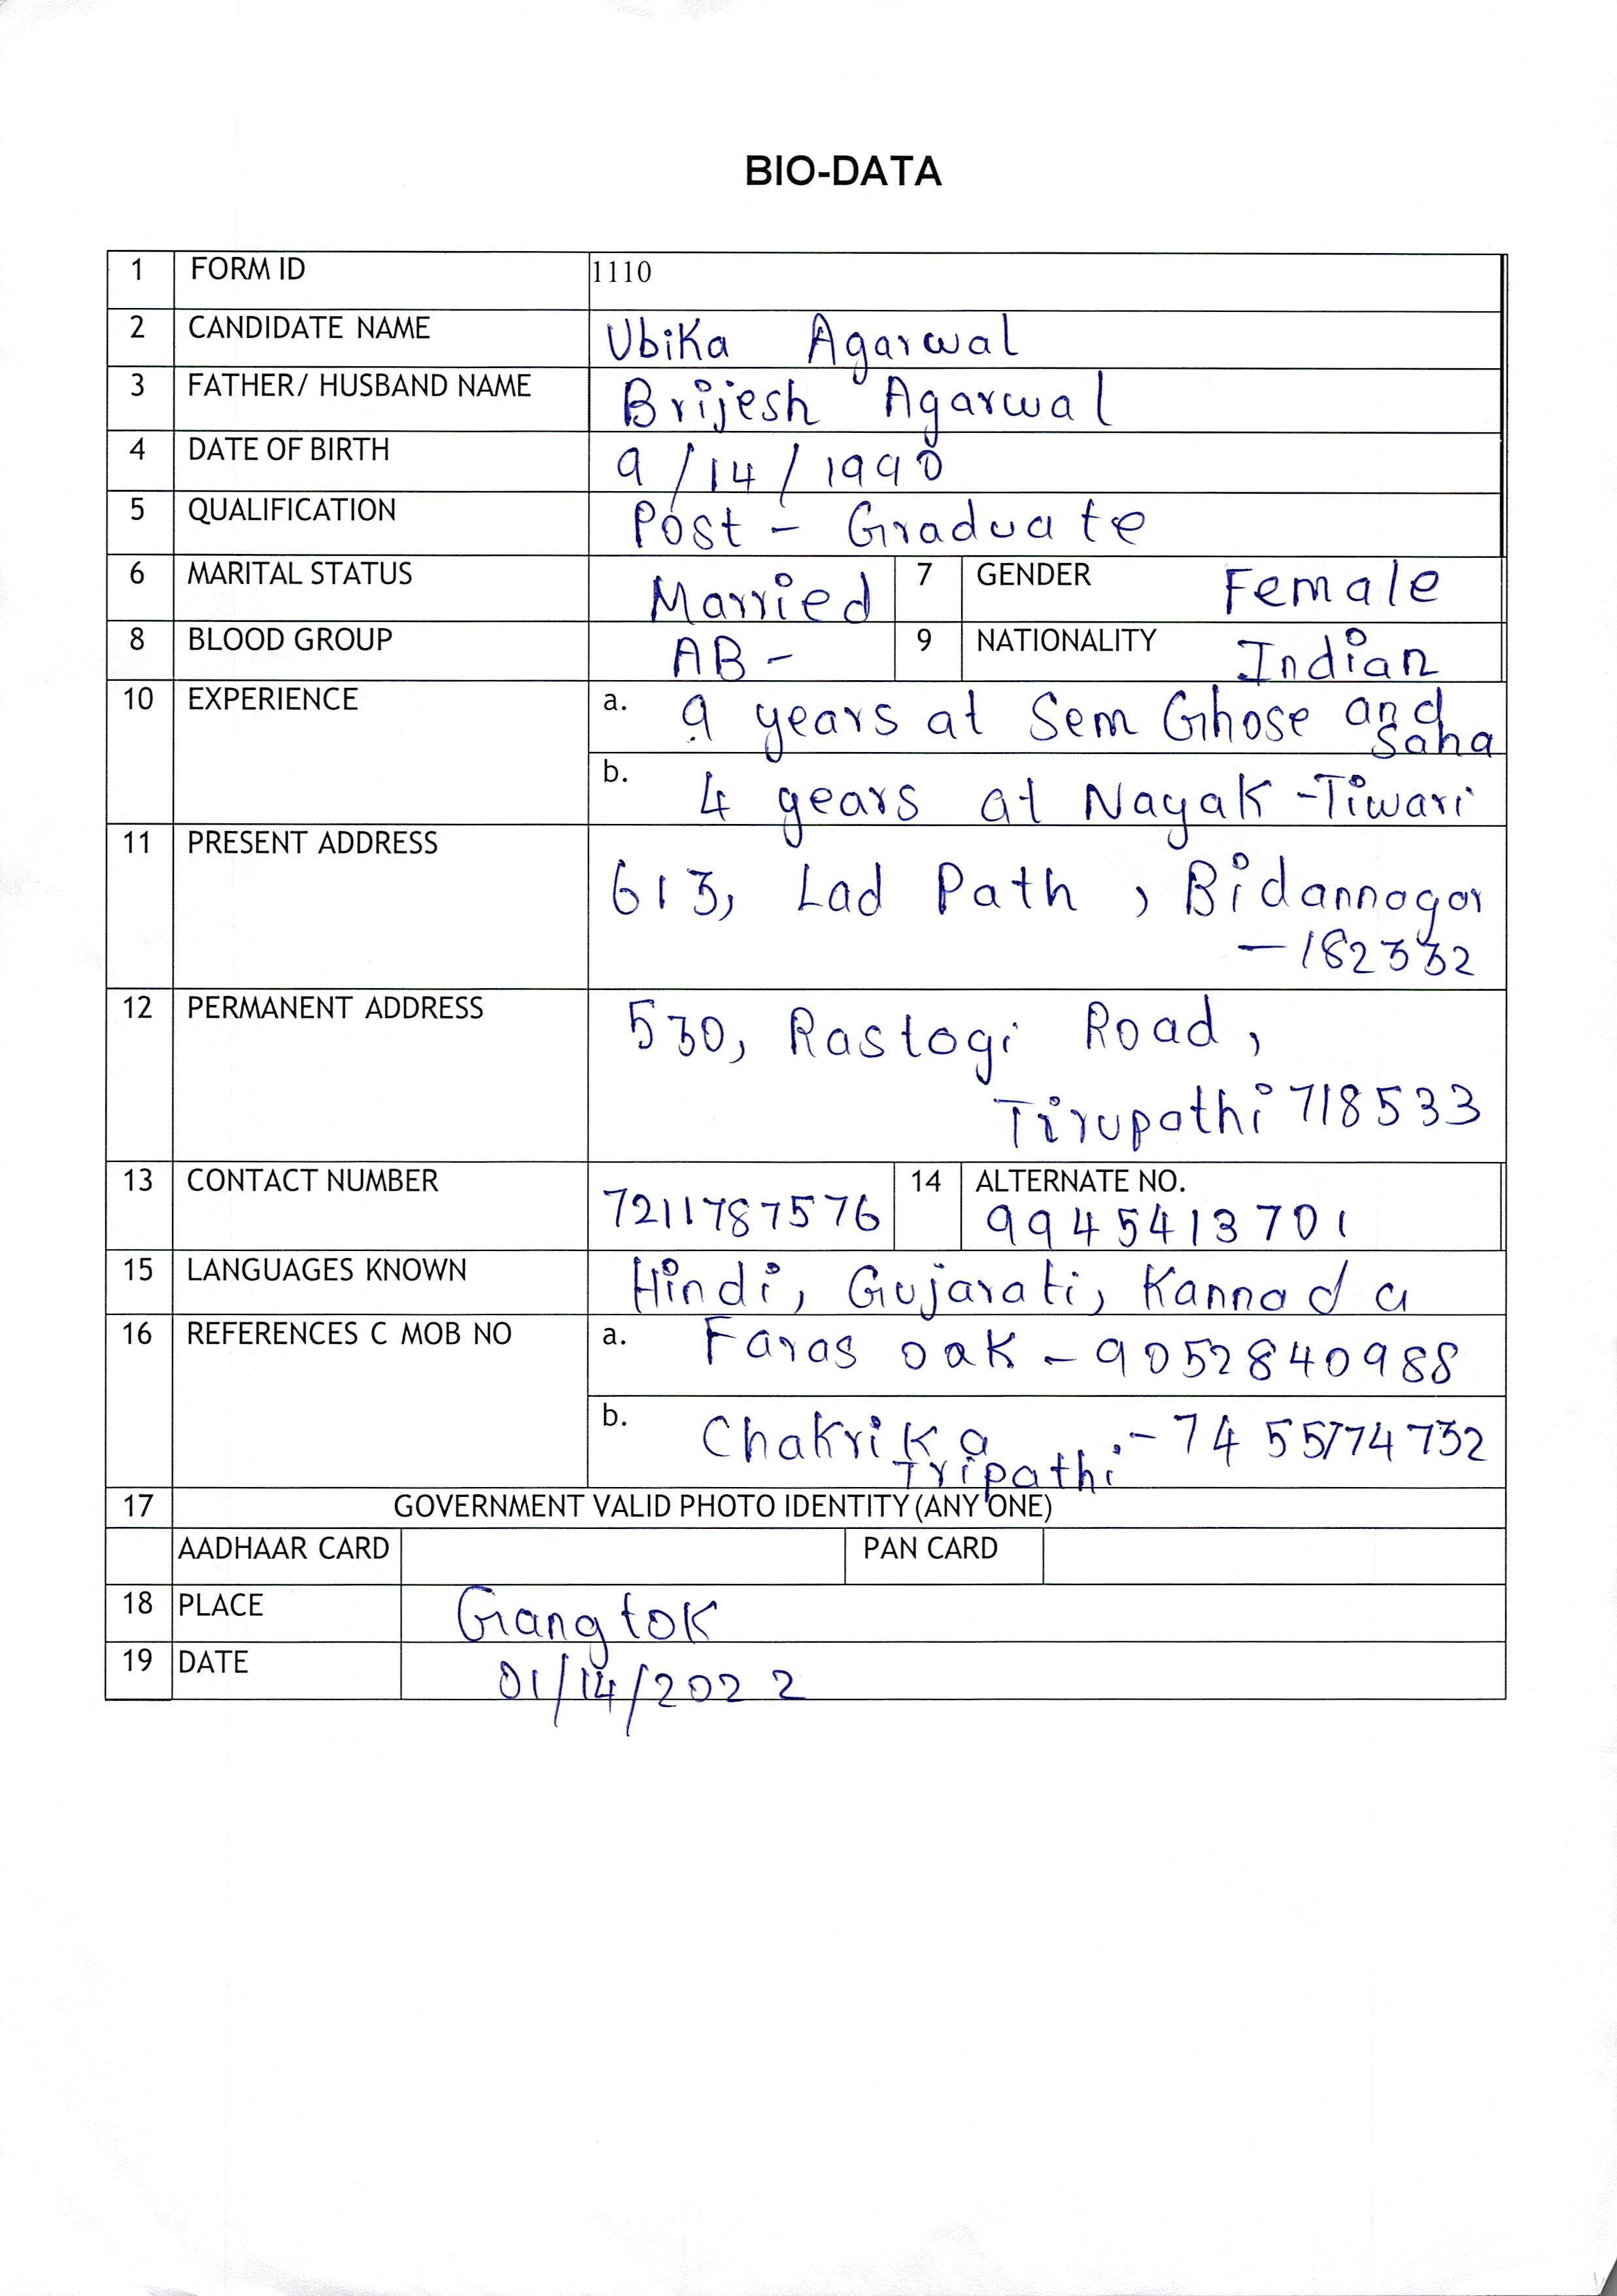 BIO-DATA
1 FORM ID 1110
2 CANDIDATE NAME Ubika Agarwal
3 FATHER/ HUSBAND NAME Brijesh Agarwal
4 DATE OF BIRTH 9/14/1990
5 QUALIFICATION Post - Graduate
6 MARITAL STATUS Married 7 GENDER Female
8 BLOOD GROUP AB - 9 NATIONALITY Indian
10 EXPERIENCE a. 9 years at Sem Ghose and
Saha
b. 4 years at Nayak -Tiwari
11 PRESENT ADDRESS
613, Lad Path , Bidannagar
- 182332
12 PERMANENT ADDRESS 530, Rastogi Road,
Tirupathi 718533
13 CONTACT NUMBER 7211787576 14 ALTERNATE NO.
9945413701
15 LANGUAGES KNOWN Hindi, Gujarati, Kannada
16 REFERENCES C MOB NO a. Faras oak - 9052840988
b. Chakrika - 7455774732
Tripathi
17 GOVERNMENT VALID PHOTO IDENTITY (ANY ONE)
AADHAAR CARD PAN CARD
18 PLACE Gangtok
19 DATE 01/14/2022